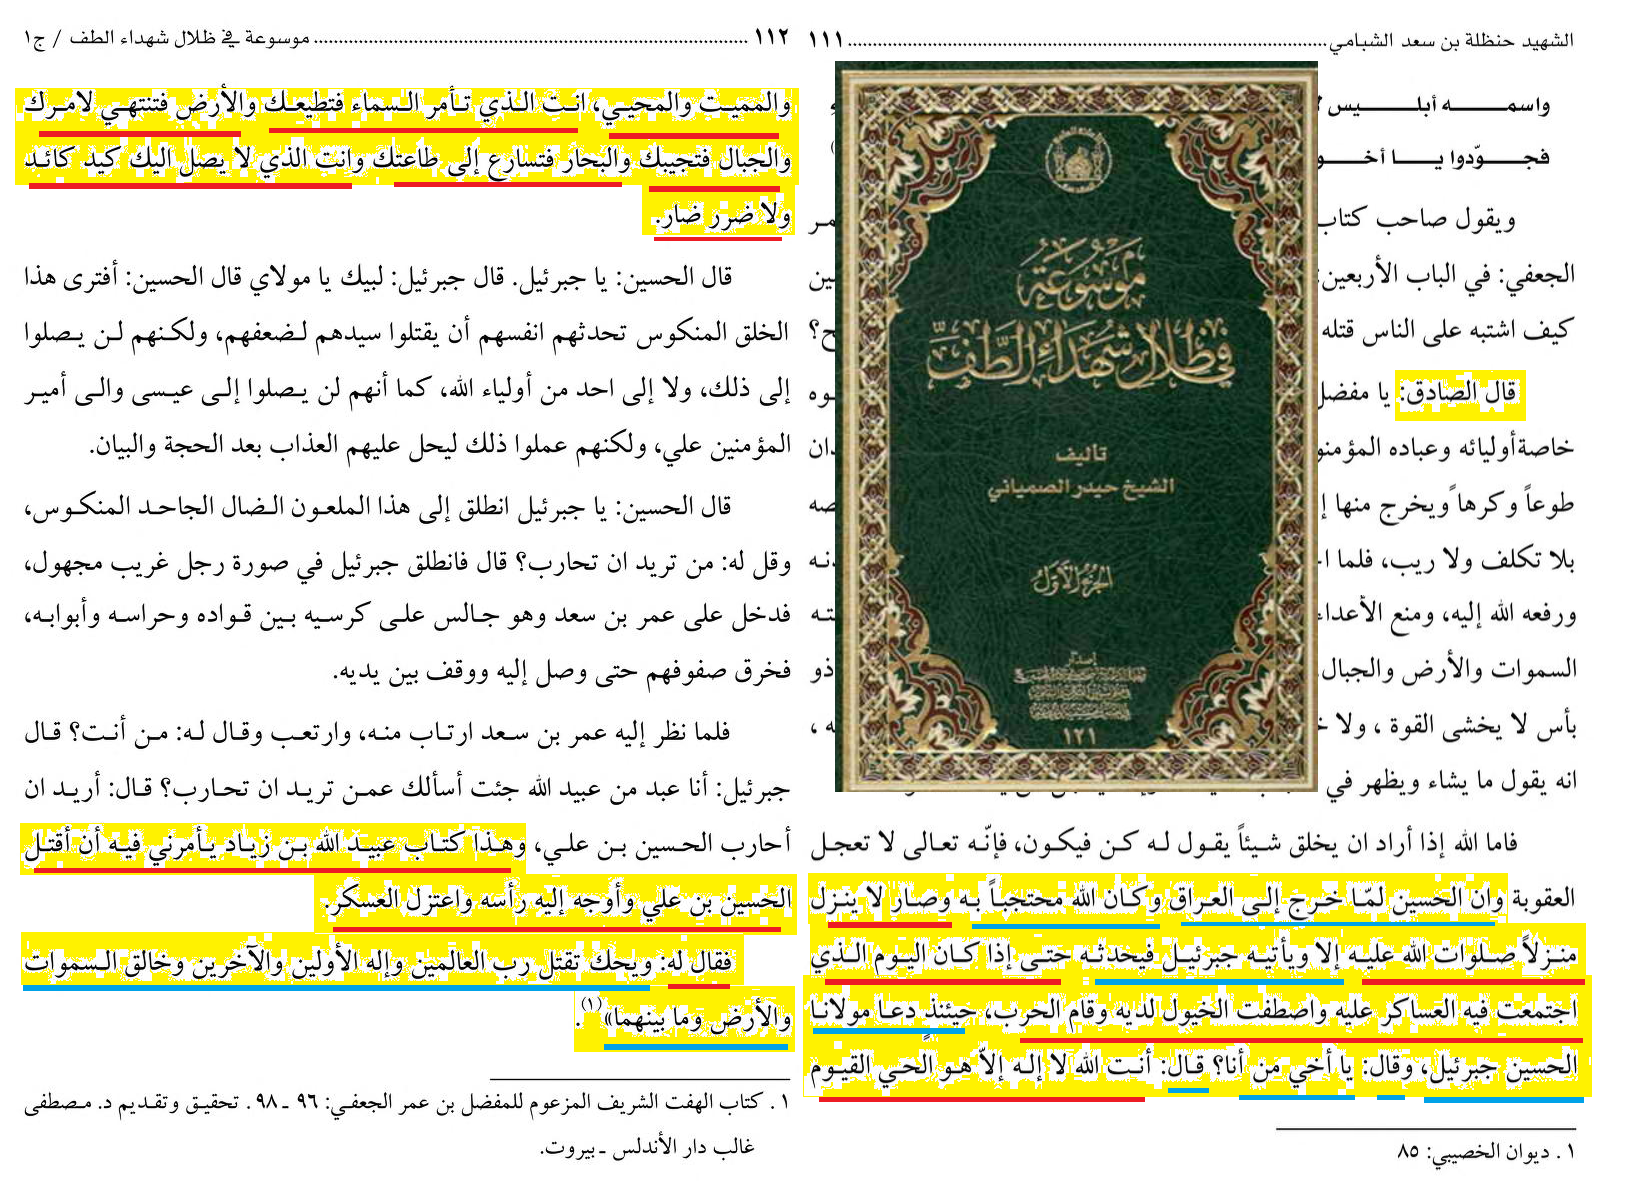 الشهيد حنظلة بن سعد الشبامي ... ١١١
واسمـــــه أبلـــــيس
فجـــــوّدوا يـــــا أخـــو
ويقول صاحب كتاب
الجعفي: في الباب الأربعين:
كيف اشتبه على الناس قتله
قال الصادق: يا مفضل
خاصة أوليائه وعباده المؤمنو
طوعاً وكرهاً ويخرج منها
بلا تكلف ولا ريب، فلما
ورفعه الله إليه، ومنع الأعداء
السموات والأرض والجبال
بأس لا يخشى القوة ، ولا
انه يقول ما يشاء ويظهر في
فاما الله إذا أراد ان يخلق شـيئاً يقـول لـه كـن فيكـون، فإنّـه تعـالى لا تعجـل
العقوبة وان الحسين لمّـا خـرج إلـى العـراق وكـان الله محتجبـاً بـه وصـار لا ينـزل
منـزلاً صـلوات الله عليـه إلا ويأتيـه جبرئيـل فيحدثـه حتـى إذا كـان اليـوم الـذي
اجتمعت فيه العساكر عليه واصطفت الخيول لديه وقام الحرب، حيئنذٍ دعـا مولانـا
الحسين جبرئيل، وقال: يا أخي من أنا؟ قـال: أنـت الله لا إلـه إلاّ هـو الحـي القيـوم
١ . ديوان الخصيبي: ٨٥
موسوعة
في ظلال شهداء الطف
تأليف
الشيخ حيدر الصمياني
الجزء الأول
إصدار
١٢١
١١٢ ... موسوعة في ظلال شهداء الطف / ج١
والمميـت والمحيـي، انـت الـذي تـأمر الـسماء فتطيعـك والأرض فتنتهـي لامـرك
والجبال فتجيبك والبحار فتسارع إلى طاعتك وانت الذي لا يصل اليك كيد كائـد
ولا ضرر ضار.
قال الحسين: يا جبرئيل. قال جبرئيل: لبيك يا مولاي قال الحسين: أفترى هذا
الخلق المنكوس تحدثهم انفسهم أن يقتلوا سيدهم لـضعفهم، ولكـنهم لـن يـصلوا
إلى ذلك، ولا إلى احد من أولياء الله، كما أنهم لن يـصلوا إلـى عيـسى والـى أميـر
المؤمنين علي، ولكنهم عملوا ذلك ليحل عليهم العذاب بعد الحجة والبيان.
قال الحسين: يا جبرئيل انطلق إلى هذا الملعـون الـضال الجاحـد المنكـوس،
وقل له: من تريد ان تحارب؟ قال فانطلق جبرئيل في صورة رجل غريب مجهول،
فدخل على عمر بن سعد وهو جـالس علـى كرسـيه بـين قـواده وحراسـه وأبوابـه،
فخرق صفوفهم حتى وصل إليه ووقف بين يديه.
فلما نظر إليه عمر بن سـعد ارتـاب منـه، وارتعـب وقـال لـه: مـن أنـت؟ قـال
جبرئيل: أنا عبد من عبيد الله جئت أسألك عمـن تريـد ان تحـارب؟ قـال: أريـد ان
أحارب الحسين بـن علـي، وهـذا كتـاب عبيـد الله بـن زيـاد يـأمرني فيـه أن أقتـل
الحسين بن علي وأوجه إليه رأسه واعتزل العسكر.
فقال له: ويحك تقتل رب العالمين وإله الأولين والآخرين وخالق الـسموات
والأرض وما بينهما»(١).
١ . كتاب الهفت الشريف المزعوم للمفضل بن عمر الجعفـي: ٩٦ ـ ٩٨ . تحقيـق وتقـديم د. مـصطفى
غالب دار الأندلس ـ بيروت.